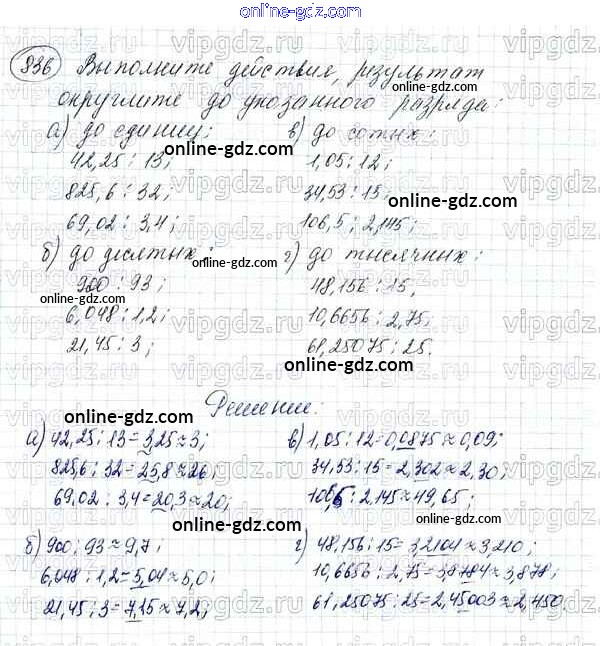 online-gdz.com
836 Выполните действия, результат
округлите до указанного разряда:
а) до единиц:
42,25 : 13;
825,6 : 32;
69,02 : 3,4;
б) до десятых:
900 : 93;
6,048 : 1,2;
21,45 : 3;
в) до сотых:
1,05 : 12;
34,53 : 15;
106,5 : 2,145;
г) до тысячных:
48,156 : 15,
10,6656 : 2,75,
61,25075 : 25.
Решение:
а) 42,25 : 13 = 3,25 ≈ 3;
825,6 : 32 = 25,8 ≈ 26;
69,02 : 3,4 = 20,3 ≈ 20;
б) 900 : 93 ≈ 9,7;
6,048 : 1,2 = 5,04 ≈ 5,0;
21,45 : 3 = 7,15 ≈ 7,2;
в) 1,05 : 12 = 0,0875 ≈ 0,09;
34,53 : 15 = 2,302 ≈ 2,30;
106,5 : 2,145 ≈ 49,65;
г) 48,156 : 15 = 3,2104 ≈ 3,210;
10,6656 : 2,75 = 3,8784 ≈ 3,878;
61,25075 : 25 = 2,45003 ≈ 2,450.
vipgdz.ru
online-gdz.com